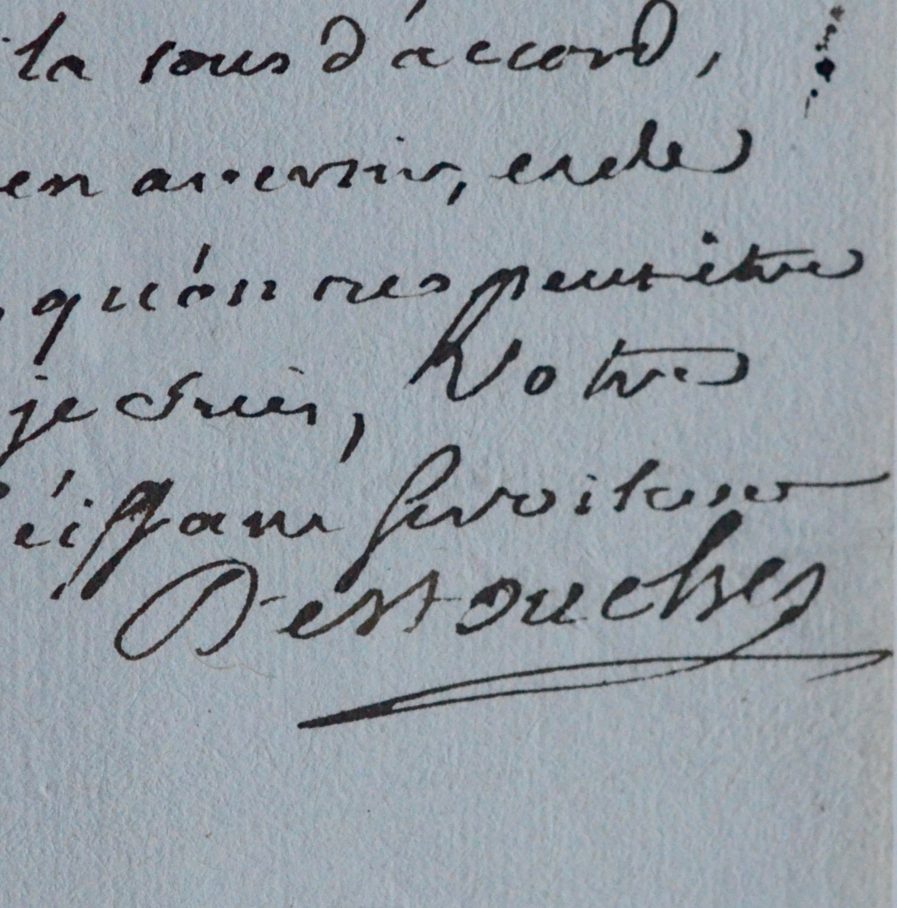 la tous d'accord,
en avertir, et de
qu'on ne peut être
je suis, Votre
éissant serviteur
Destouches